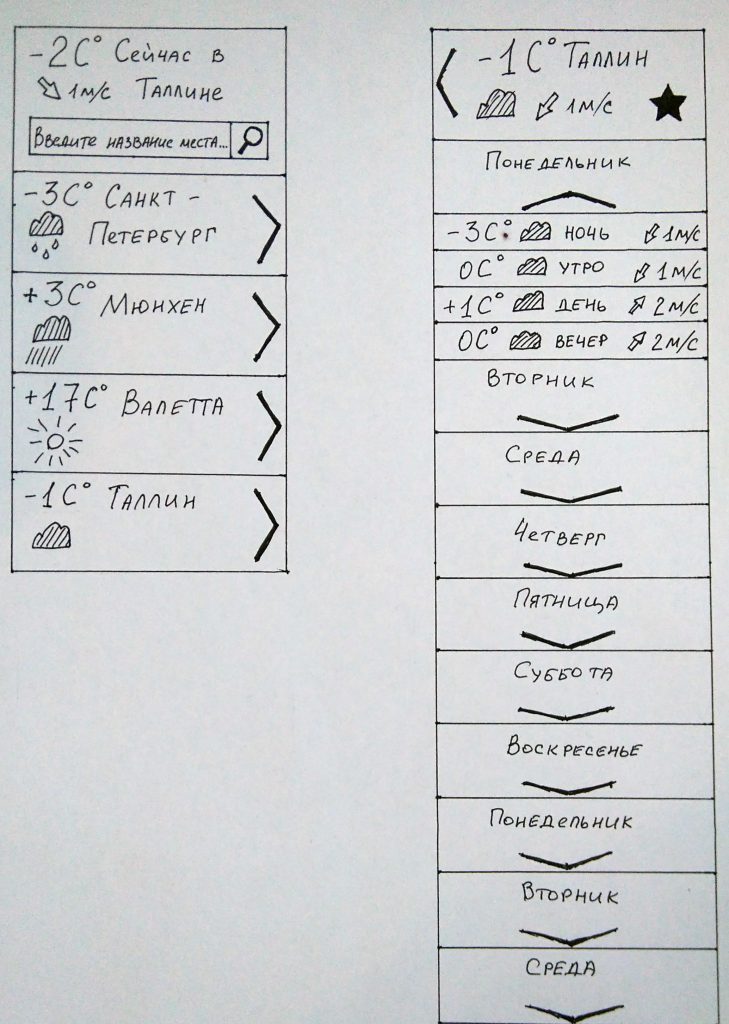 -2C° Сейчас в
1м/с Таллине
Введите название места...
-3C° Санкт -
Петербург
+3C° Мюнхен
+17C° Валетта
-1C° Таллин
-1C° Таллин
1м/с
Понедельник
-3C° ночь 1м/с
0C° утро 1м/с
+1C° день 2м/с
0C° вечер 2м/с
Вторник
Среда
Четверг
Пятница
Суббота
Воскресенье
Понедельник
Вторник
Среда